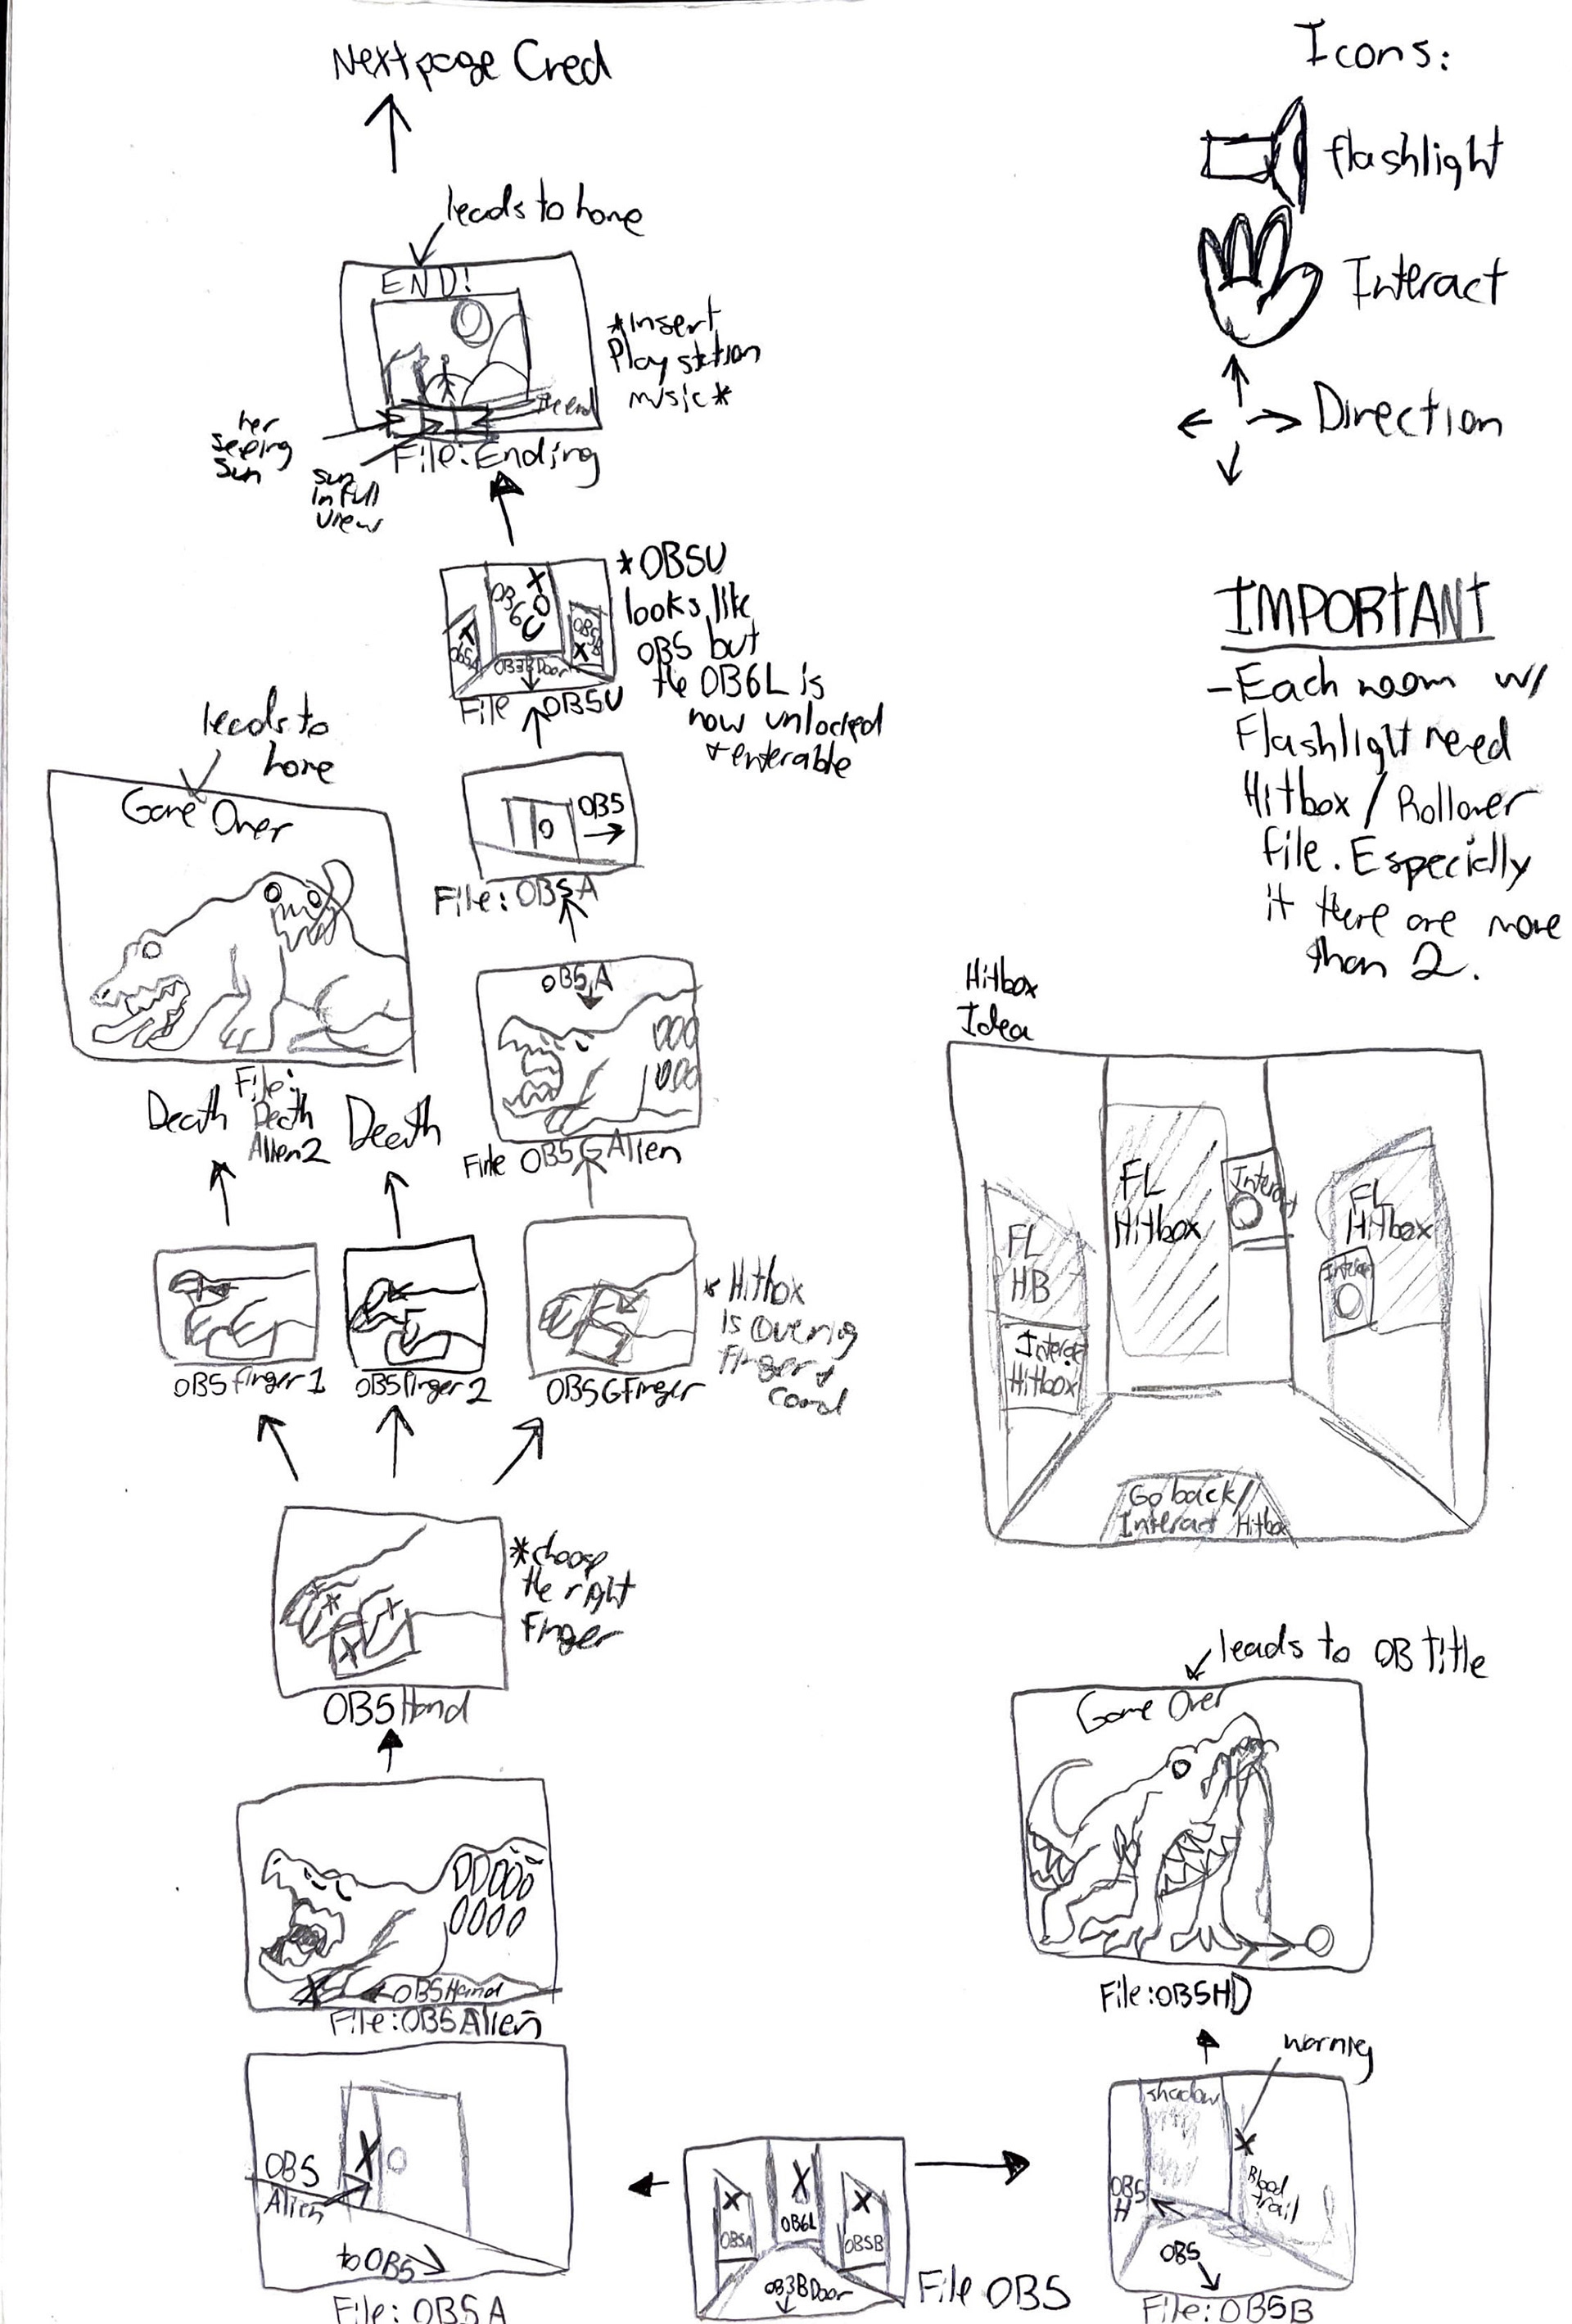 Next page Cred
leads to home
END!
*Insert
Play station
music*
the end
her
seeing
Sun
sun
in full
view
File: Ending
*OB5U
looks like
OB5 but
the OB6L is
now unlocked
+ enterable
OB6
X
OB5A
OB5B
X
OB3BDoor
File OB5U
OB5
File: OB5A
leads to
home
Game Over
File:
Death
Alien2
Death
Death
OB5A
File OB5GAlien
OB5finger1
OB5finger2
OB5GFinger
* Hitbox
is Overing
finger +
*choose
the right
Finger
X
X
X
OB5Hand
X
OB5Hand
File: OB5Alien
OB5
Alien
X
to OB5
File: OB5A
X
X
X
OB5A
OB6L
OB5B
OB3BDoor
File OB5
Icons:
flashlight
Interact
Direction
IMPORTANT
-Each room w/
Flashlight need
Hitbox / Rollover
file. Especially
if there are more
than 2.
Hitbox
Idea
FL
HB
Interact
Hitbox
FL
Hitbox
Interact
FL
Hitbox
Interact
Go back/
Interact Hitbox
leads to OB title
Game Over
File: OB5HD
warning
shadow
X
Blood
trail
OB5
H
OB5
File: OB5B